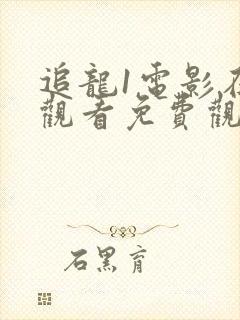 追龍1電影在
觀看免費觀
石黑育